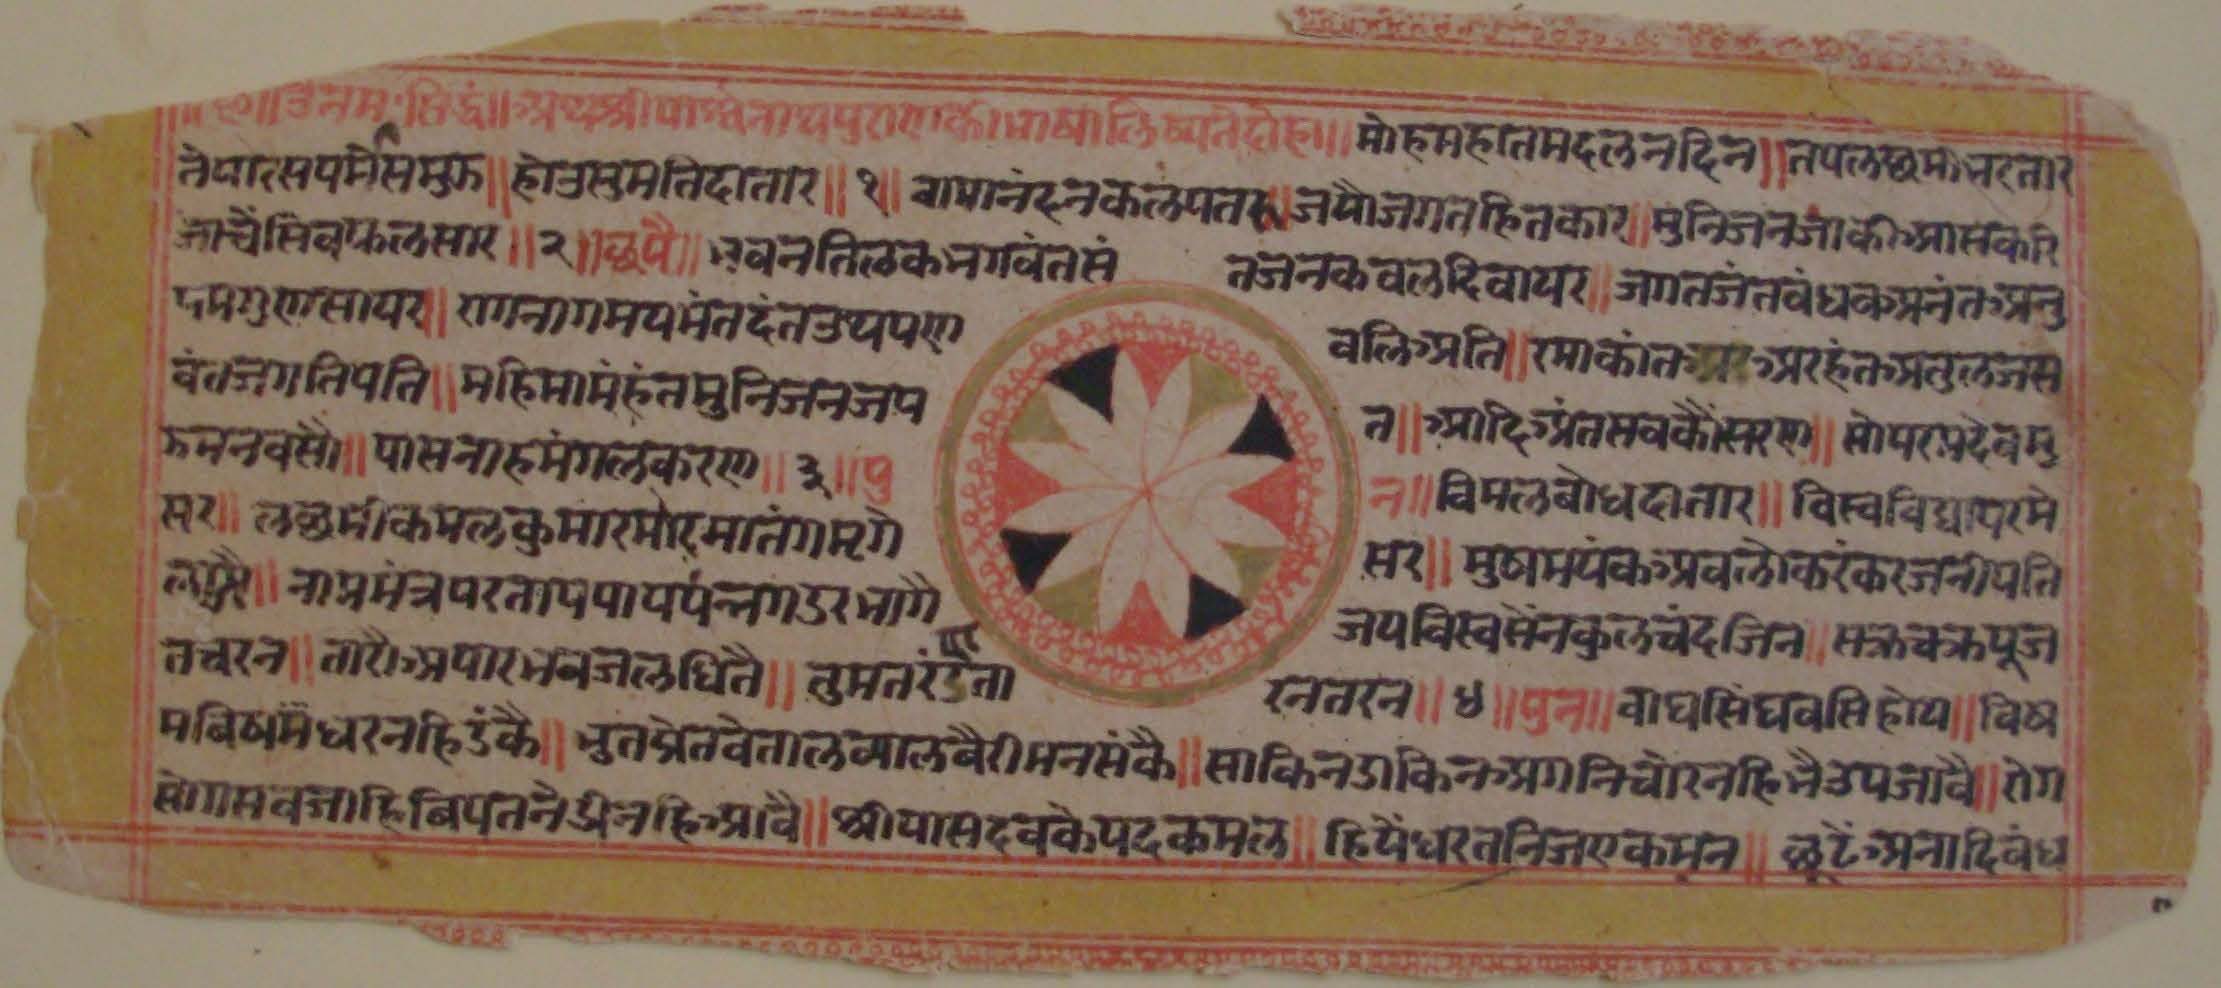 ॥ए॥उंनमःसिद्धं॥अथश्रीपार्श्वनाथपुराणकीभाषालिष्यतेदोहा॥मोहमहातमदलनदिन॥तपलछमीभरतार
तेपारसपरमेसमुझ॥होउसुमतिदातार॥१॥वामानंदनकलपतरु॥जयौजगतहितकार॥मुनिजनजाकीआसकरि
जाचैंसिवफलसार॥२॥छपै॥भवनतिलकभगवंतसं तजनकवलदिवायर॥जगतजंतवंधकअनंतअनु
पमगुणसायर॥रागनागमयमंतदंतउथपण वलिअति॥रमाकांतअरअरहंतअतुलजस
वंतजगतिपति॥महिमामंहंतमुनिजनजप त॥आदिअंतसवकौंसरण॥सोपरमदेवमु
झमनवसौ॥पासनाहमंगलकरण॥३॥पु न॥विमलबोधदातार॥विस्वविद्यापरमे
सर॥लछमीकमलकुमारमारमातंगमृगे सर॥मुषमयंकअवलोकरंकरजनीपति
लाजै॥नाममंत्रपरतापपापपंन्नगडरभागै जयविस्वसेंनकुलचंदजिन॥सक्रचक्रपूज
तचरन॥तारौअपारभवजलधितै॥तुमतरंडता रनतरन॥४॥पुन॥वाघसिंघवसिहोय॥विष
मबिषमैधरनहिडंकै॥भुतप्रेतवेतालव्यालबैरीमनसंकै॥साकिनडाकिनअगनिचोरनहिभैउपजावै॥रोग
सोगसवजाहिबिपतनैडेनहिआवै॥श्रीपासदेवकेपदकमल॥हियेंधरतनिजएकमन॥छूटेंअनादिबंध